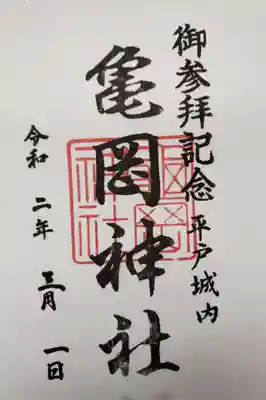 御参拝記念 平戸城内
亀岡神社
令和 二年 三月 一日